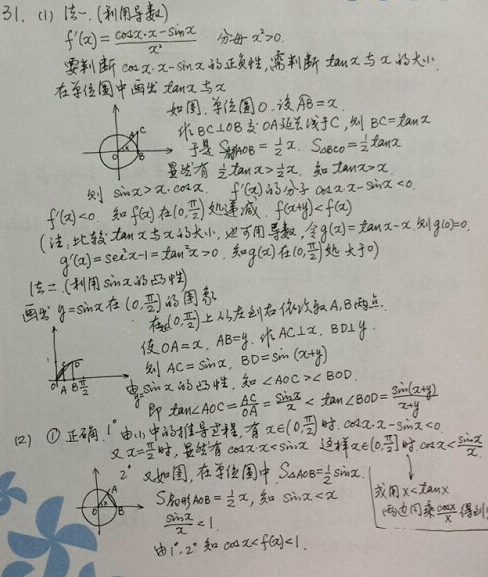 31. (1) 法一.(利用导数)
f'(x) = (cosx·x-sinx)/x² 分母 x²>0.
要判断 cosx·x-sinx 的正负性,需判断 tanx 与 x 的大小
在单位圆中画出 tanx 与 x
如图,单位圆O.设AB=x.
作BC⊥OB交OA延长线于C,则BC=tanx
于是 S扇AOB=½x. S△BCO=½tanx
显然有 ½tanx>½x. 知 tanx>x.
则 sinx>x·cosx. f'(x)的分子 cosx·x-sinx<0.
f'(x)<0. 知f(x)在(0,π/2)处递减. f(x+y)<f(x)
(注:比较tanx与x的大小,也可用导数,令g(x)=tanx-x,则g(0)=0.
g'(x)=sec²x-1=tan²x>0. 知g(x)在(0,π/2)处大于0)
法二.(利用sinx的凸性)
画出 y=sinx 在(0,π/2)的图象
在(0,π/2)上从左到右依次取A,B两点.
使OA=x, AB=y. 作AC⊥x, BD⊥y.
则 AC=sinx, BD=sin(x+y)
由y=sinx的凸性,知 <AOC><BOD.
即 tan<AOC=AC/OA=sinx/x<tan<BOD=sin(x+y)/(x+y)
(2) ① 正确. 1° 由小中的推导过程,有x∈(0,π/2)时,cosx·x-sinx<0.
又x=π/2时,显然有cosx·x<sinx 这样x∈(0,π/2]时,cosx<sinx/x.
2° 又如图,在单位圆中,S△AOB=½sinx.
S扇形AOB=½x,知 sinx<x
sinx/x<1.
由1°,2°知 cosx<f(x)<1.
或用x<tanx
两边同乘cosx/x得到